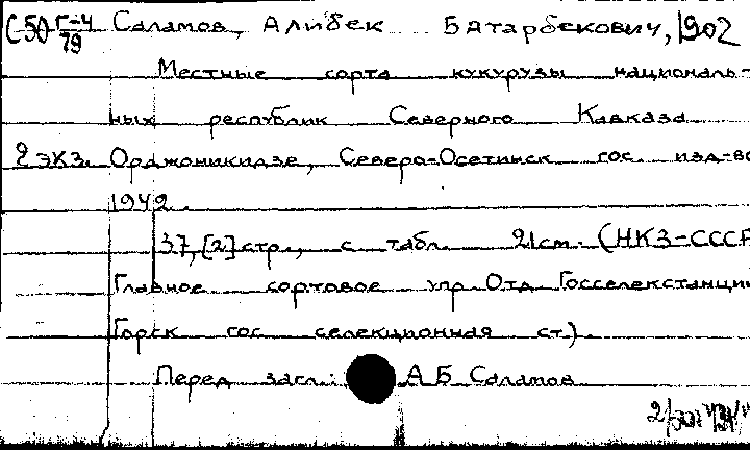 С50 Г-4/79 Саламов, Алибек Батарбекович, 1902
Местные сорта кукурузы националь-
ных республик Северного Кавказа
2 экз. Орджоникидзе, Северо-Осетинск гос. изд-во
1942.
37, [2] стр., с табл. 21см. (НКЗ-СССР
Главное сортовое упр. Отд. Госселекстанции
Горск гос селекционная ст.)
Перед загл.: А Б Саламов